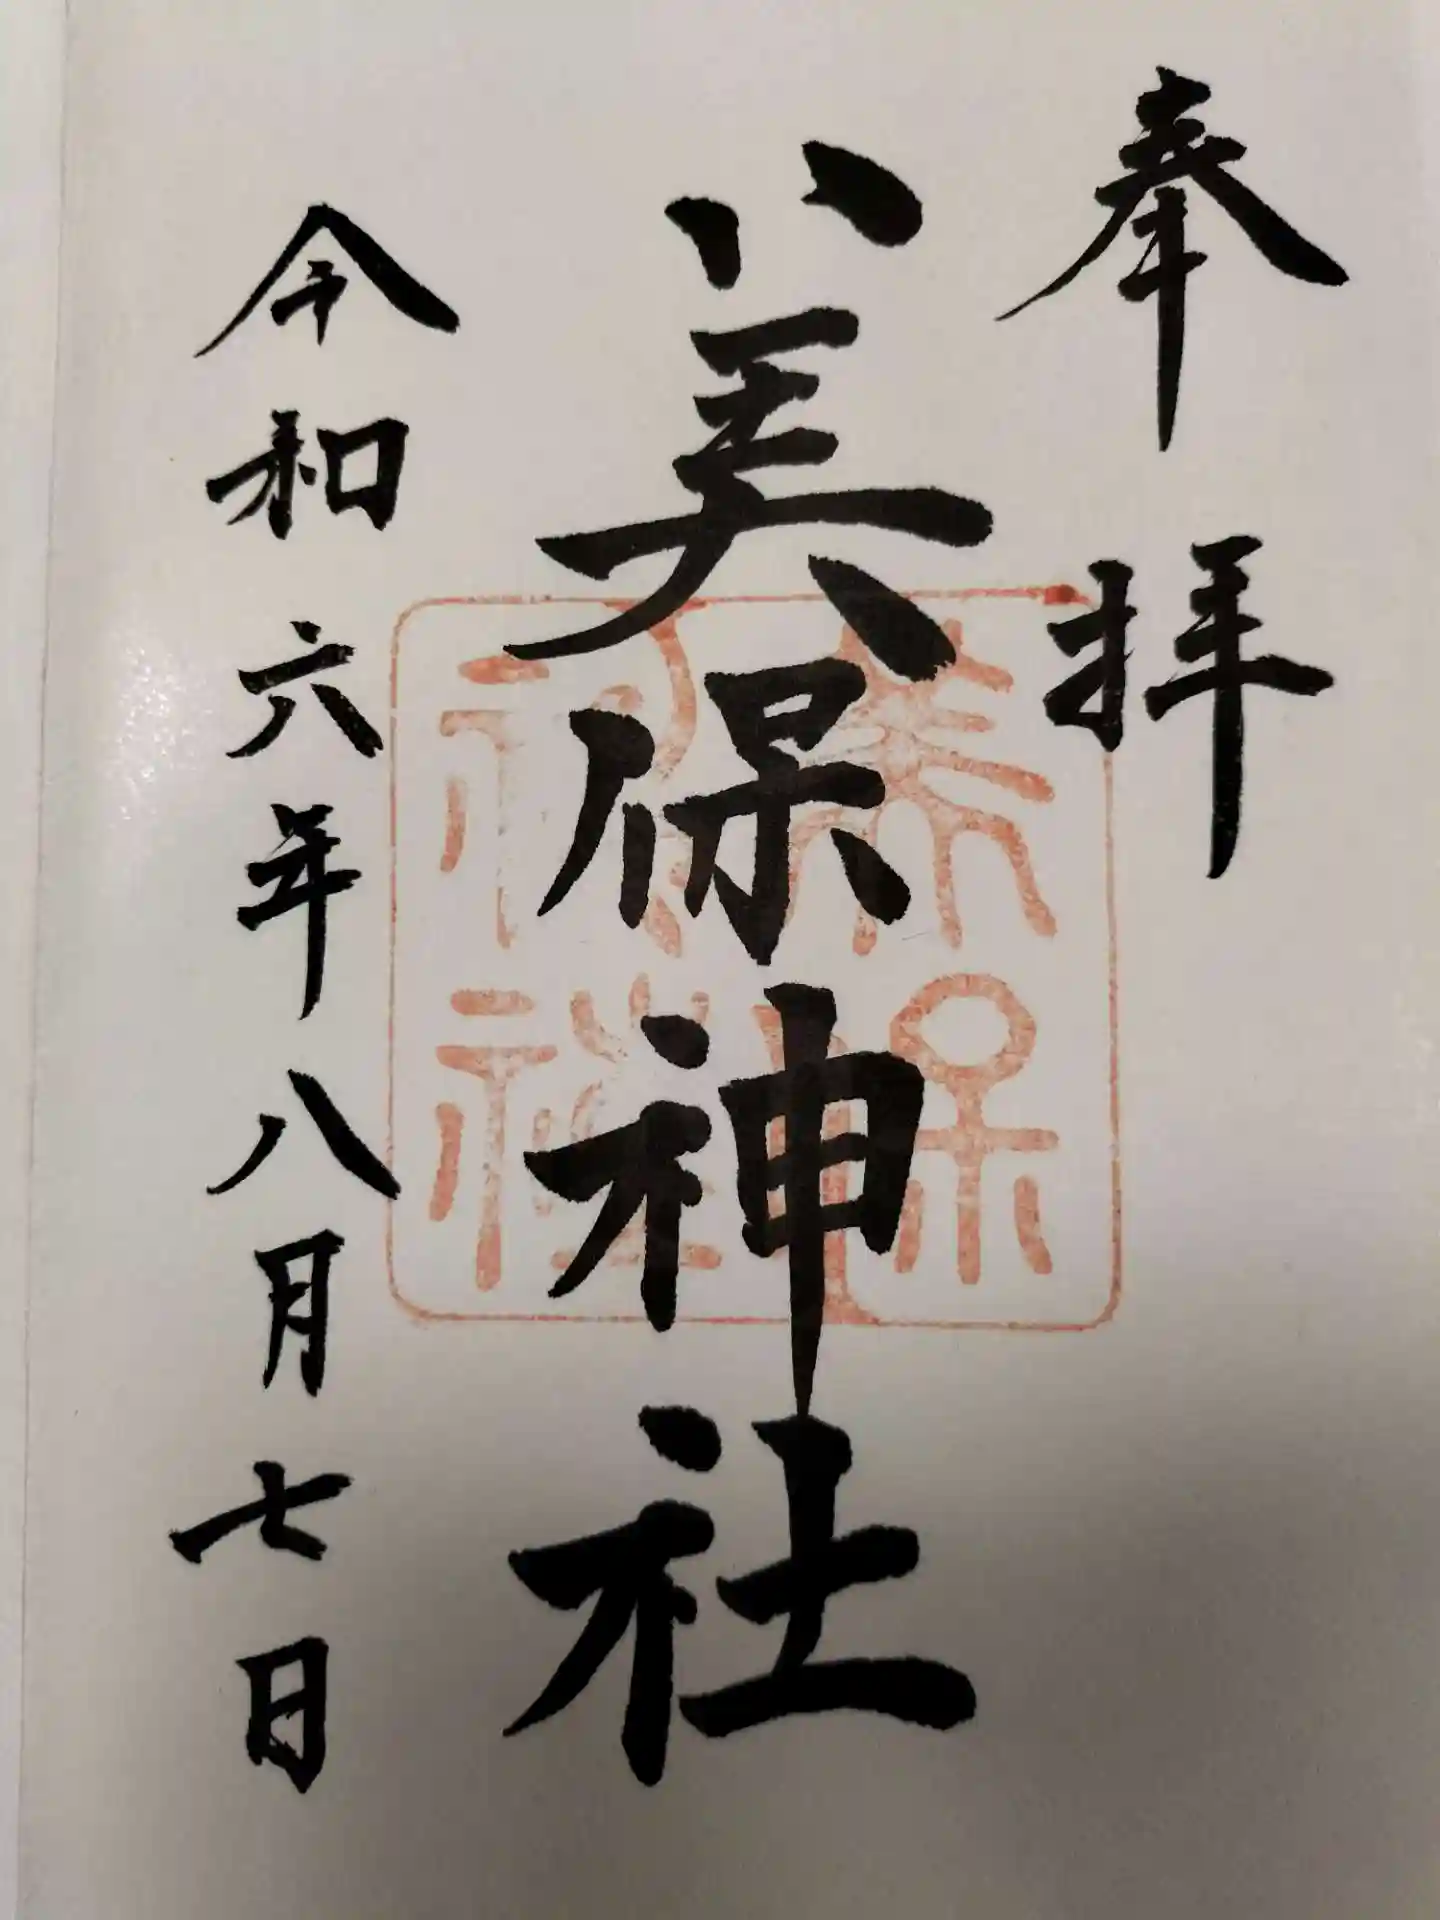 奉拝
美保神社
美保
神社
令和六年八月七日